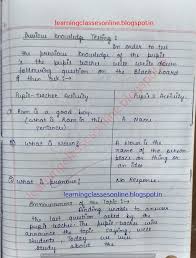 learningclassesonline.blogspot.in
Previous Knowledge Testing :
In order to test
the previous knowledge of the pupil's
the pupil teacher will write down
following question on the Black-board
& then ask :-
Pupil-teacher Activity Pupil's Activity
1) Ram is a good boy. A Name
(what is Ram in this
sentence)
2) What is noun? A Noun is the
name of the person
place or thing or
an idea
3) What is pronoun? No Response.
learningclassesonline.blogspot.in
Announcement of the Topic :-
Finding unable to answer
the last question asked by the
pupil teacher. The pupil teacher will
announce the topic saying, well
students Today we will
study about the